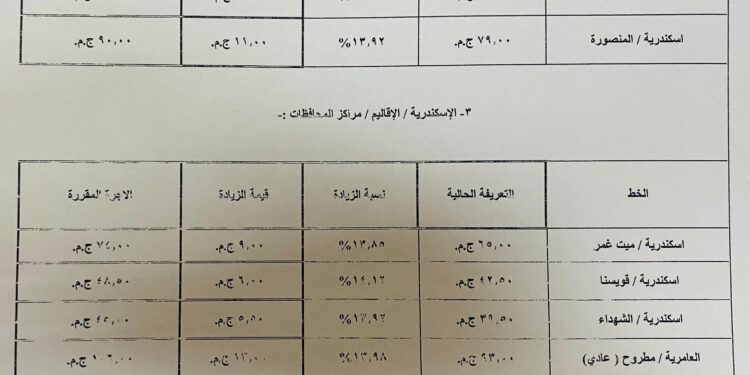 اسكندرية / المنصورة ٧٩,٠٠ ج.م. ١٣,٩٢% ١١,٠٠ ج.م. ٩٠,٠٠ ج.م.
٣- الإسكندرية / الإقاليم / مراكز المحافظات :-
الخط التعريفة الحالية نسبة الزيادة قيمة الزيادة الاجرة المقررة
اسكندرية / ميت غمر ٦٥,٠٠ ج.م. ١٣,٨٥% ٩,٠٠ ج.م. ٧٤,٠٠ ج.م.
اسكندرية / قويسنا ٤٢,٥٠ ج.م. ١٤,١٢% ٦,٠٠ ج.م. ٤٨,٥٠ ج.م.
اسكندرية / الشهداء ٣٩,٥٠ ج.م. ١٣,٩٢% ٥,٥٠ ج.م. ٤٥,٠٠ ج.م.
العامرية / مطروح ( عادي) ٩٣,٠٠ ج.م. ١٣,٩٨% ١٣,٠٠ ج.م. ١٠٦,٠٠ ج.م.